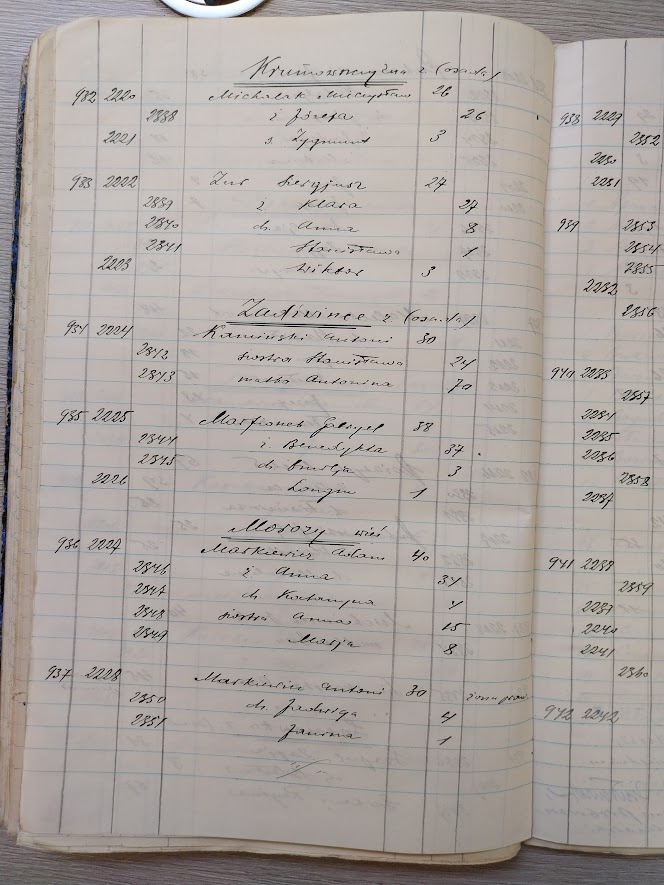 Krumowszczyzna z. (osada)
982 2220 Michalak Mieczysław 26
2838 ż. Józefa 26
2221 s. Zygmunt 3
933 2222 Żur Sergjusz 27
2839 ż Klara 27
2840 ch. Anna 8
2841 Stanisława 1
2223 Wiktor 3
z. (osada)
934 2224 Kamiński Antoni 30
2842 siostra Stanisława 24
2843 matka Antonina 70
935 2225 Gabryel 38
2844 ż. Benedykta 37
2845 ch. Emilja 3
2226 Longin 1
Morozy wieś
936 2227 Markiewicz Adam 40
2846 ż Anna 34
2847 ch Katarzyna 4
2848 siostra Anna 15
2849 Marja 8
937 2228 Markiewicz Antoni 30
2850 ch. Jadwiga 4
2851 Janina 1
938 2229
2852
2230
2231
939 2853
2854
2855
2232
2856
940 2233
2857
2234
2235
2236
2858
2237
941 2238
2859
2239
2240
2241
2860
942 2242